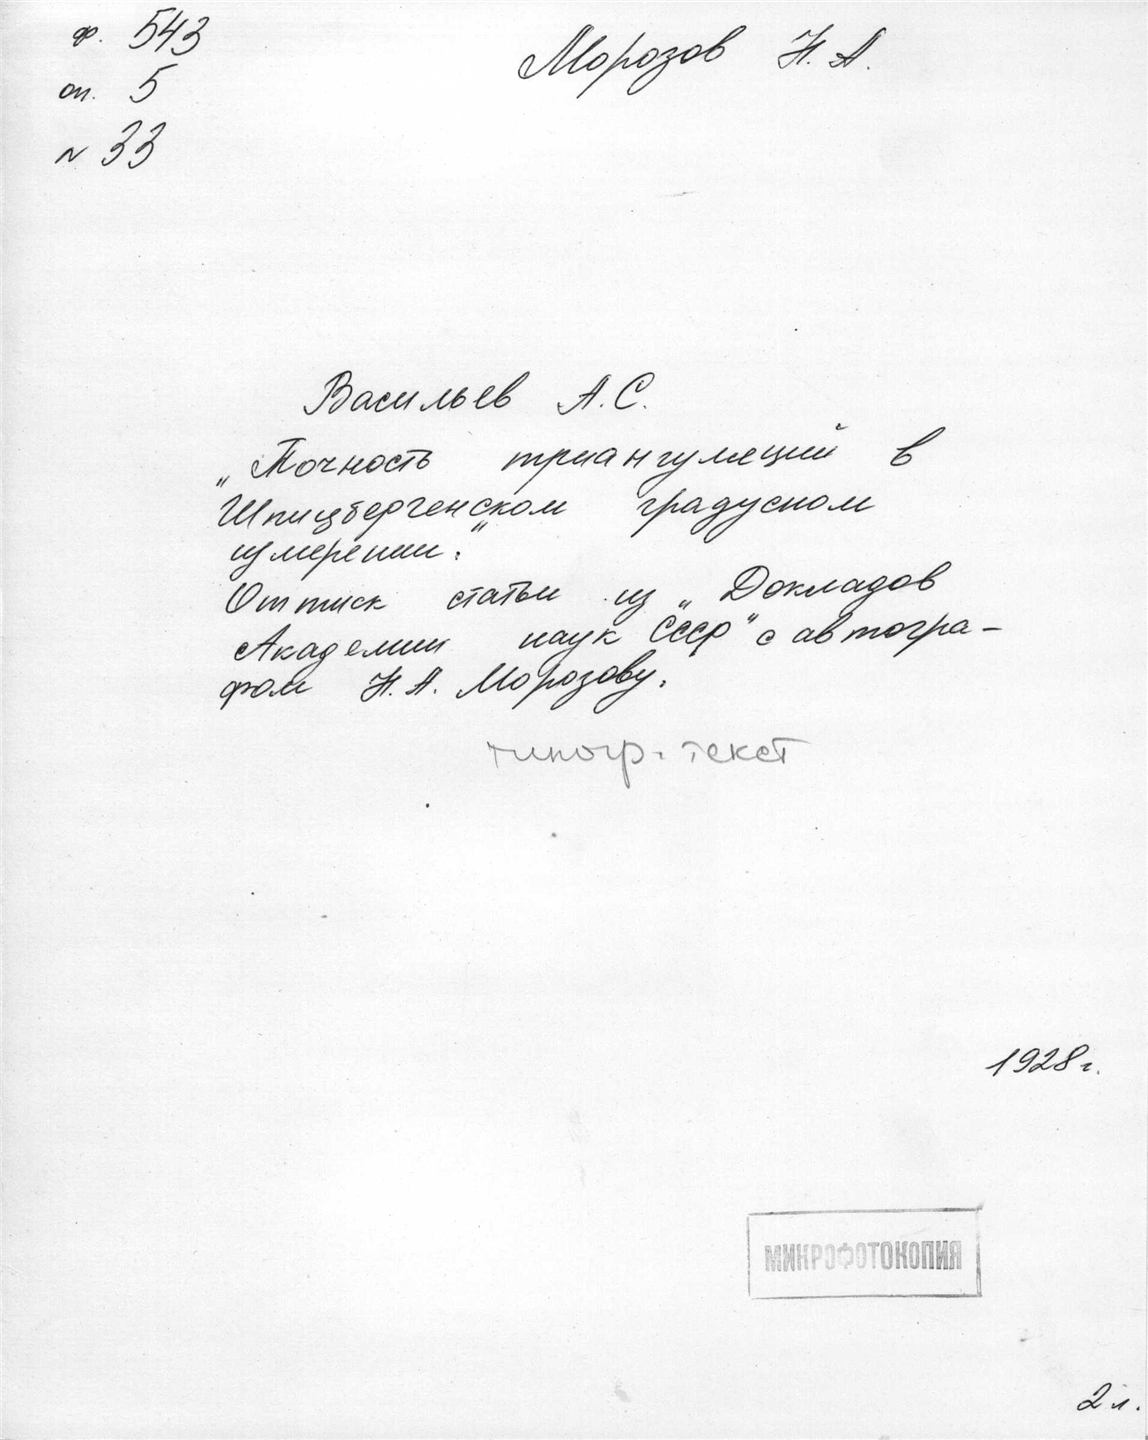 ф. 543
оп. 5
№ 33
Морозов Н. А.
Васильев А. С.
„Точность триангуляций в
Шпицбергенском градусном
измерении."
Оттиск статьи из „Докладов
Академии наук СССР" с автогра-
фом Н. А. Морозову.
типогр. текст
1928 г.
МИКРОФОТОКОПИЯ
2 л.